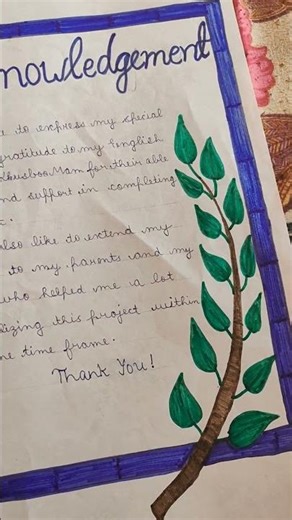 nowledgement
to express my special
gratitude to my English
Mam for their able
nd support in completing
also like to extend my
to my parents and my
who helped me a lot
izing this project within
me time frame.
Thank You!